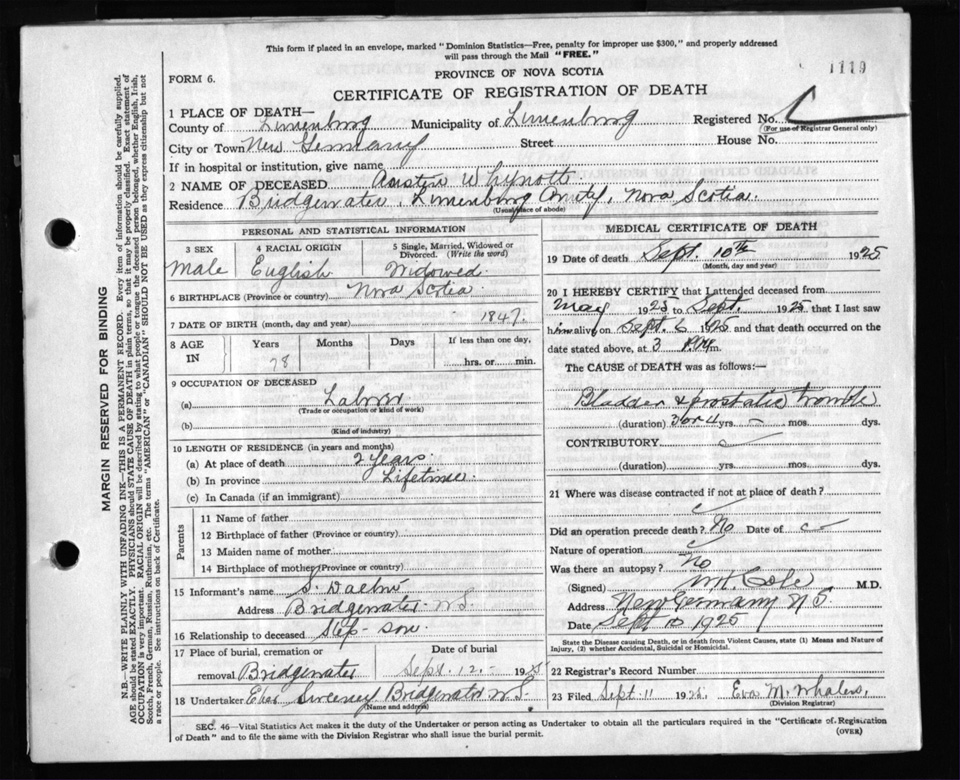 This form if placed in an envelope, marked "Dominion Statistics—Free, penalty for improper use $300," and properly addressed
will pass through the Mail "FREE."
1119
FORM 6.
PROVINCE OF NOVA SCOTIA
CERTIFICATE OF REGISTRATION OF DEATH
1 PLACE OF DEATH—
County of Lunenburg Municipality of Lunenburg Registered No.
(For use of Registrar General only)
City or Town New Germany Street House No.
If in hospital or institution, give name
2 NAME OF DECEASED Austen Whynott
Residence Bridgewater, Lunenburg County, Nova Scotia.
(Usual place of abode)
PERSONAL AND STATISTICAL INFORMATION
3 SEX 4 RACIAL ORIGIN 5 Single, Married, Widowed or Divorced. (Write the word)
Male English Widowed.
6 BIRTHPLACE (Province or country) Nova Scotia.
7 DATE OF BIRTH (month, day and year) 1847.
8 AGE IN Years Months Days If less than one day,
78 hrs. or min.
9 OCCUPATION OF DECEASED
(a) Labror
(Trade or occupation or kind of work)
(b)
(Kind of industry)
10 LENGTH OF RESIDENCE (in years and months)
(a) At place of death 2 years.
(b) In province Lifetime.
(c) In Canada (if an immigrant)
Parents
11 Name of father
12 Birthplace of father (Province or country)
13 Maiden name of mother
14 Birthplace of mother (Province or country)
15 Informant's name S.
Address Bridgewater N.S.
16 Relationship to deceased Step-son
17 Place of burial, cremation or removal Bridgewater
Date of burial
Sept. 12.- 1925
18 Undertaker Sweeney Bridgewater N.S.
(Name and address)
MEDICAL CERTIFICATE OF DEATH
19 Date of death Sept. 10th 1925
(Month, day and year)
20 I HEREBY CERTIFY that I attended deceased from
May 1925 to Sept 1925 that I last saw
him alive on Sept. 6 1925 and that death occurred on the
date stated above, at 3 P.M.
The CAUSE of DEATH was as follows:—
Bladder & prostatic trouble
(duration) 3 or 4 yrs. – mos. dys.
CONTRIBUTORY
(duration) yrs. mos. dys.
21 Where was disease contracted if not at place of death?
Did an operation precede death? No Date of
Nature of operation
Was there an autopsy? No
(Signed) Cole M.D.
Address New Germany N.S.
Date Sept 10 1925
State the Disease causing Death, or in death from Violent Causes, state (1) Means and Nature of
Injury, (2) whether Accidental, Suicidal or Homicidal.
22 Registrar's Record Number
23 Filed Sept. 11 1925. M. Whalen,
(Division Registrar)
SEC. 46—Vital Statistics Act makes it the duty of the Undertaker or person acting as Undertaker to obtain all the particulars required in the "Certificate of Registration
of Death" and to file the same with the Division Registrar who shall issue the burial permit.
(OVER)
MARGIN RESERVED FOR BINDING
N.B.—WRITE PLAINLY WITH UNFADING INK—THIS IS A PERMANENT RECORD. Every item of information should be carefully supplied.
AGE should be stated EXACTLY. PHYSICIANS should STATE CAUSE OF DEATH in plain terms, so that it may be properly classified. Exact statement of
OCCUPATION is very important. RACIAL ORIGIN will be described by stating to what people or tongue the deceased person belonged, whether English, Irish,
Scotch, French, German, Russian, Ruthenian, etc. The terms "AMERICAN" or "CANADIAN" SHOULD NOT BE USED as they express citizenship but not
a race or people. See instructions on back of Certificate.